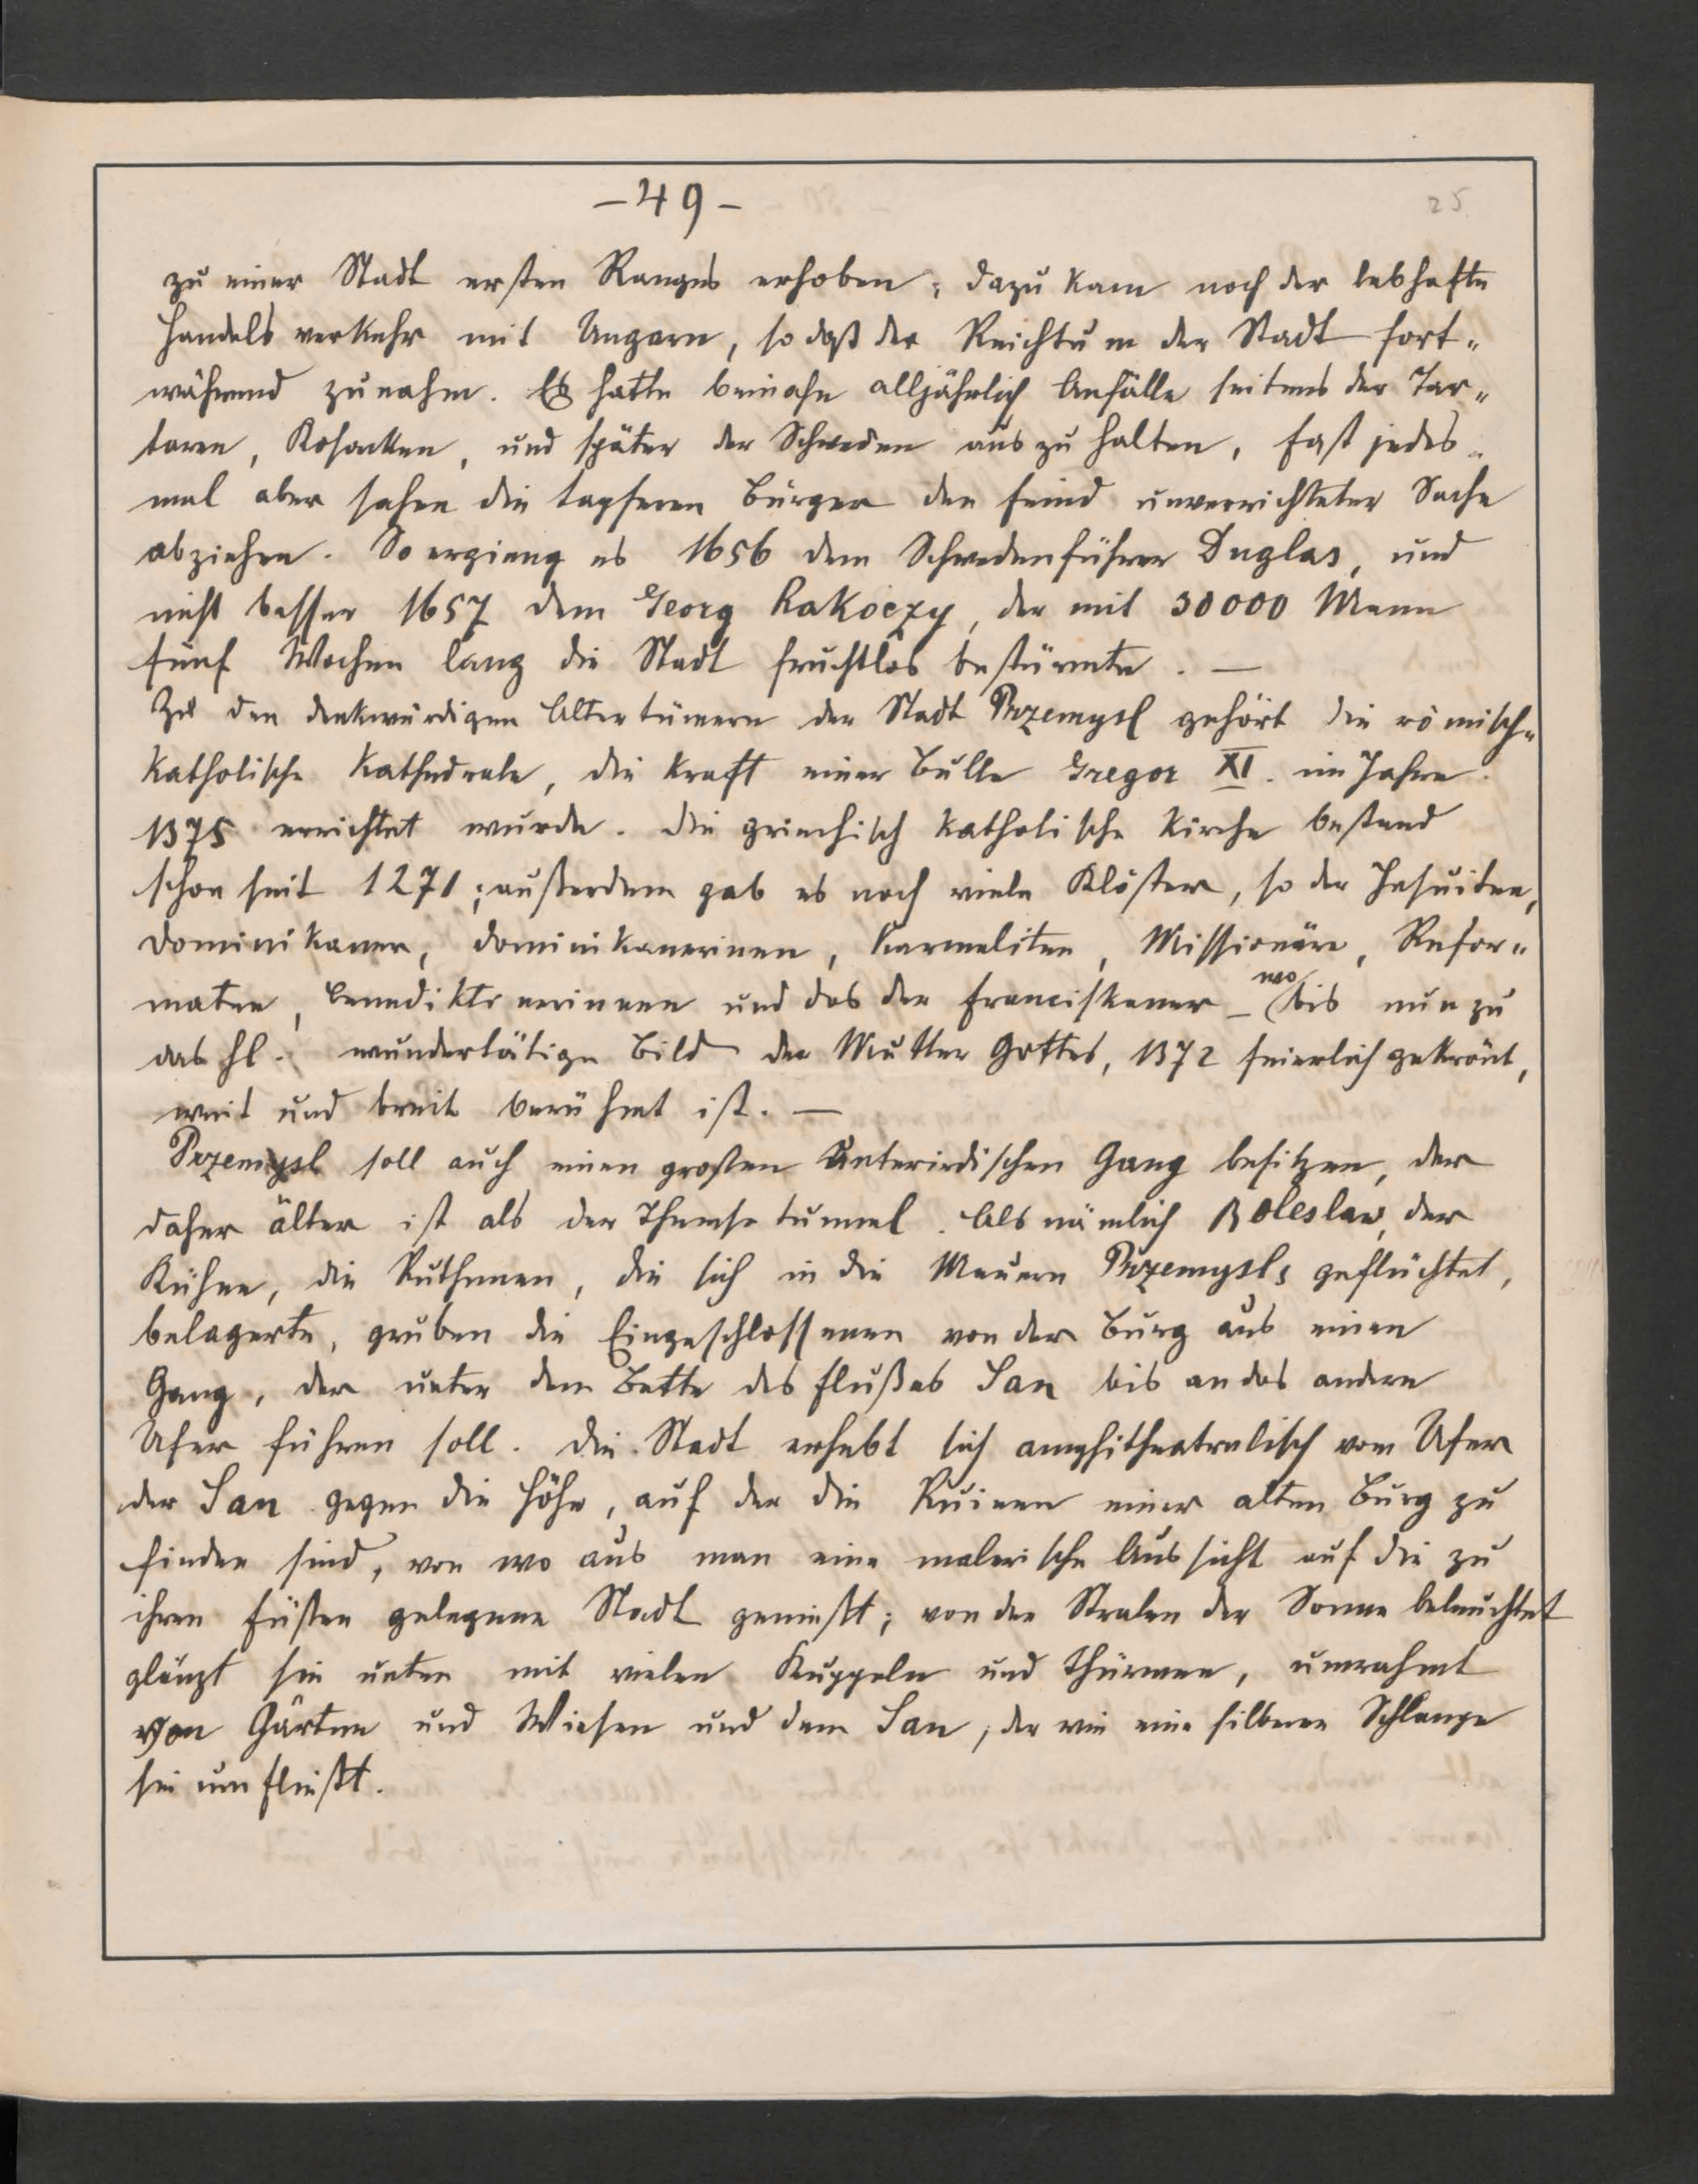 -49-
25
zu einer Stadt ersten Ranges erhoben; dazu kam noch der lebhafte
Handelsverkehr mit Ungarn, so daß der Reichtum der Stadt fort„
während zunahm. Es hatte beinahe alljährlich Anfälle seitens der Tar„
taren, Kosacken, und später der Schweden auszuhalten, fast jedes„
mal aber sahen die tapferen Bürger den Feind unverrichteter Sache
abziehen. So ergieng es 1656 dem Schwedenführer Duglas, und
nicht besser 1657 dem Georg Rakoczy, der mit 30000 Mann
fünf Wochen lang die Stadt fruchtlos bestürmte. —
Zu den denkwürdigen Altertümern der Stadt Przemysl gehört die römisch„
katholische Kathedrale, die kraft einer Bulle Gregor XI. im Jahre
1375 errichtet wurde. Die griechisch katholische Kirche bestand
schon seit 1271; außerdem gab es noch viele Klöster, so der Jesuiten,
Dominikaner, Dominikanerinen, Karmeliten, Missionäre, Refor„
maten, Benediktinerinnen und das der Franciskaner – wo bis nun zu
das hl. wundertätige Bild der Mutter Gottes, 1372 feierlich gekrönt,
weit und breit berühmt ist. —
Przemysl soll auch einen großen unterirdischen Gang besitzen, der
daher älter ist als der Themsetunnel. Als nämlich Boleslaw, der
Kühne, die Ruthenen, die sich in die Mauern Przemysls geflüchtet,
belagerte, gruben die Eingeschlossenen von der Burg aus einen
Gang, der unter dem Bette des Flußes San bis an das andere
Ufer führen soll. Die Stadt erhebt sich amphitheatralisch vom Ufer
der San gegen die Höhe, auf der die Ruinen einer alten Burg zu
finden sind, von wo aus man eine malerische Aussicht auf die zu
ihren Füßen gelegene Stadt genießt; von den Stralen der Sonne beleuchtet
glänzt sie unten mit vielen Kuppeln und Thürmen, umrahmt
von Gärten und Wiesen und dem San, der wie eine silberne Schlange
sie umfließt.